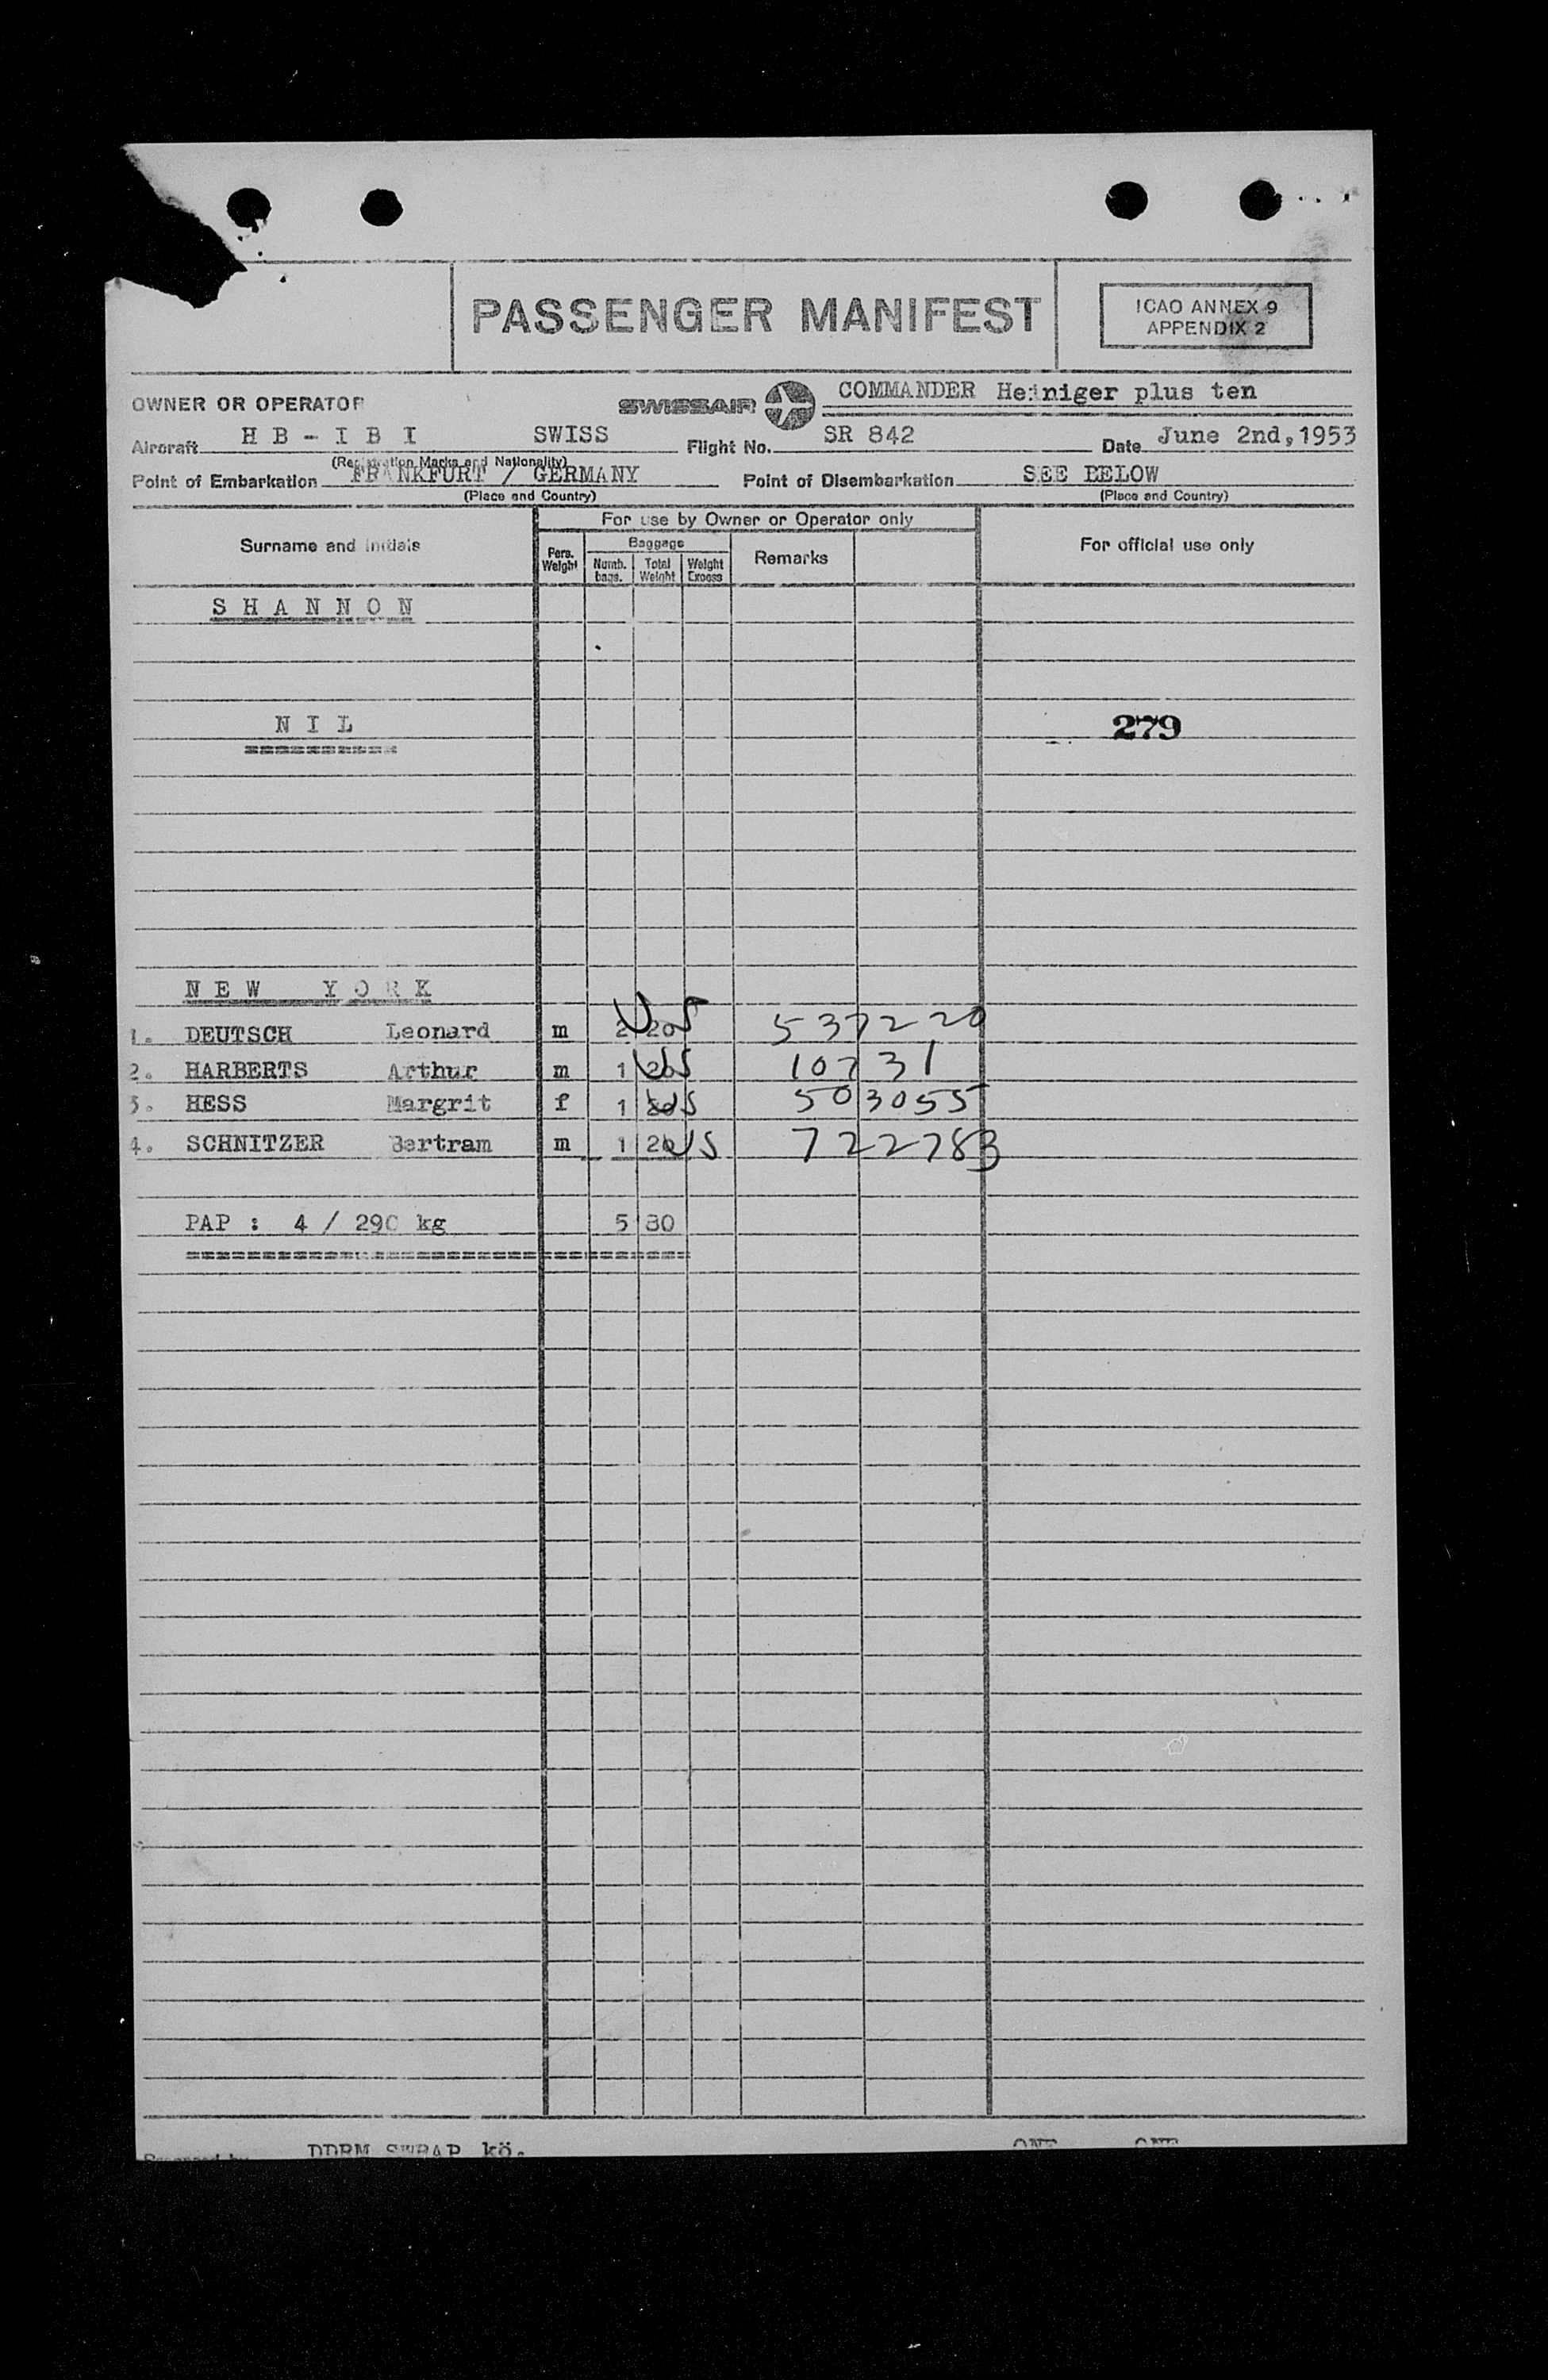 PASSENGER MANIFEST
ICAO ANNEX 9
APPENDIX 2
OWNER OR OPERATOR SWISSAIR COMMANDER Heiniger plus ten
Aircraft H B - I B I SWISS Flight No. SR 842 Date June 2nd, 1953
(Registration Marks and Nationality)
Point of Embarkation FRANKFURT / GERMANY Point of Disembarkation SEE BELOW
(Place and Country) (Place and Country)
Surname and initials
For use by Owner or Operator only
Pers. Weight
Baggage
Numb. bags. Total Weight Weight Excess
Remarks
For official use only
S H A N N O N
N I L
279
N E W Y O R K
1. DEUTSCH Leonard m 2 20 US 537220
2. HARBERTS Arthur m 1 20 US 10731
3. HESS Margrit f 1 20 US 503055
4. SCHNITZER Bertram m 1 20 US 722783
PAP : 4 / 290 kg 5 80